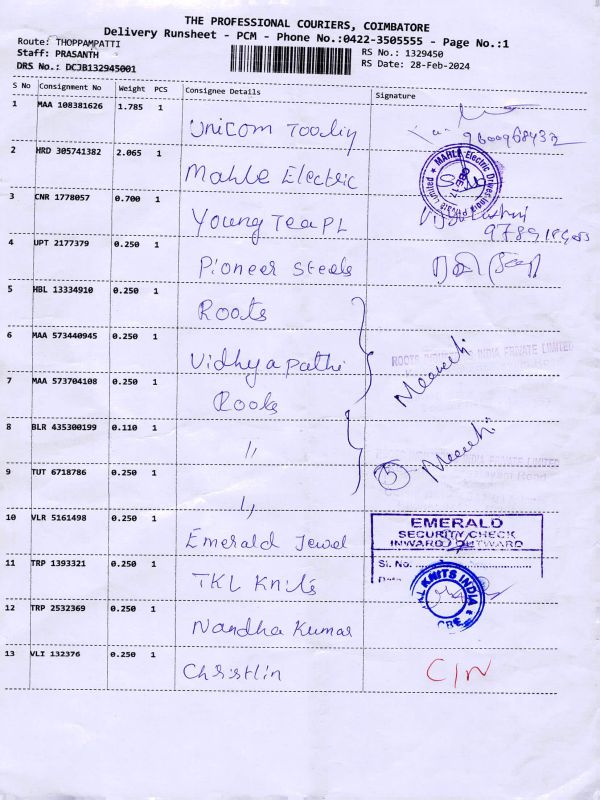 THE PROFESSIONAL COURIERS, COIMBATORE
Delivery Runsheet - PCM - Phone No.:0422-3505555 - Page No.:1
Route: THOPPAMPATTI
Staff: PRASANTH
DRS No.: DCJB132945001
RS No.: 1329450
RS Date: 28-Feb-2024
S No Consignment No Weight PCS Consignee Details Signature
1 MAA 108381626 1.785 1 Unicom Tooling
9600968432
2 HRD 305741382 2.065 1 Mahle Electric
MAHLE Electric Drives India Private Limited
3 CNR 1778057 0.700 1 Young Tea PL
4 UPT 2177379 0.250 1 Pioneer Steels
5 HBL 13334910 0.250 1 Roots
6 MAA 573440945 0.250 1 Vidhyapathi
ROOTS INDIA PRIVATE LIMITED
7 MAA 573704108 0.250 1 Roots
8 BLR 435300199 0.110 1 "
INDIA PRIVATE LIMITED
5
9 TUT 6718786 0.250 1 "
10 VLR 5161498 0.250 1 Emerald Jewel
EMERALD
SECURITY CHECK
INWARD / OUTWARD
Sl. No.
11 TRP 1393321 0.250 1 TKL Knits
KNITS INDIA
CBE
12 TRP 2532369 0.250 1 Nandha Kumar
13 VLI 132376 0.250 1 Christlin C/N